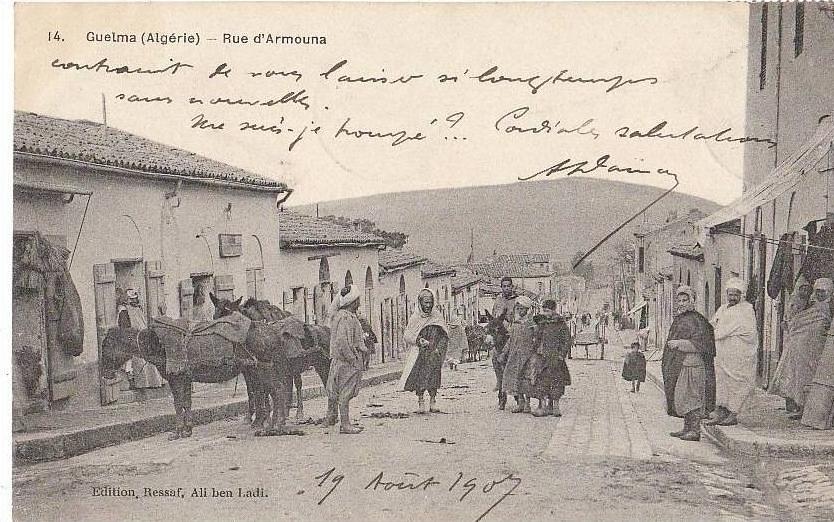 14. Guelma (Algérie) — Rue d'Armouna
contraint de vous laisser si longtemps
sans nouvelles.
Me suis-je trompé ?.. Cordiales salutations
Edition, Ressaf, Ali ben Ladi.
19 Août 1907